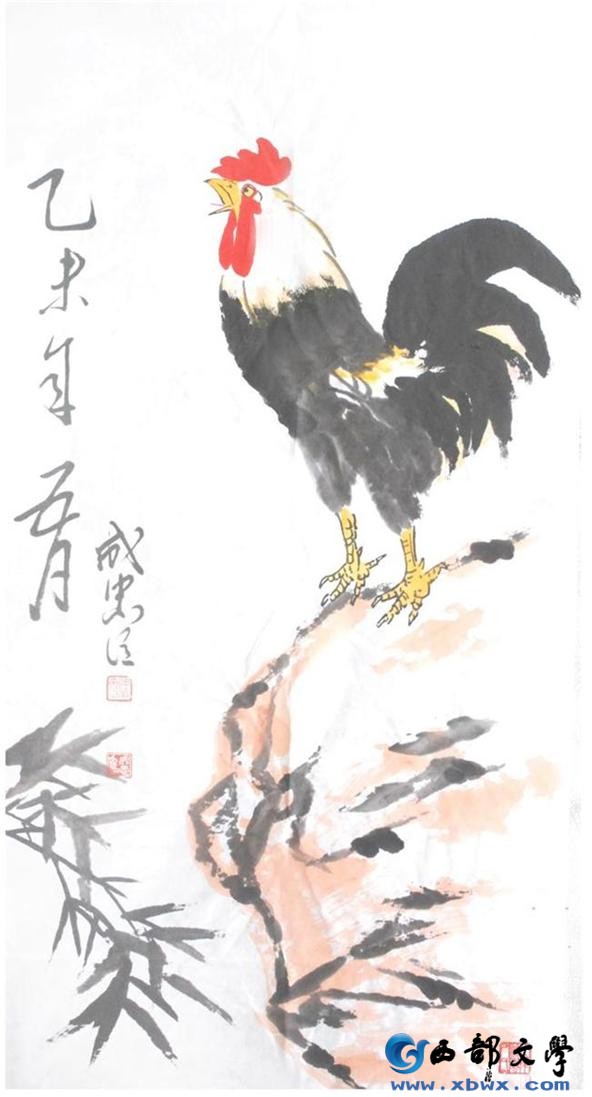 乙未年
五月
成忠作
西部文學
www.xbwx.com